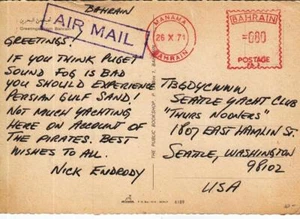 BAHRAIN
AIR MAIL
GREETINGS!
IF YOU THINK PUGET
SOUND FOG IS BAD
YOU SHOULD EXPERIENCE
PERSIAN GULF SAND!
NOT MUCH YACHTING
HERE ON ACCOUNT OF
THE PIRATES. BEST
WISHES TO ALL.
NICK ENDRODY
MANAMA
26 X 71
BAHRAIN
BAHRAIN
POSTAGE
TBGDYCWNN
SEATTLE YACHT CLUB
"THURS NOONERS"
1807 EAST HAMLIN ST.
SEATTLE, WASHINGTON
98102
USA